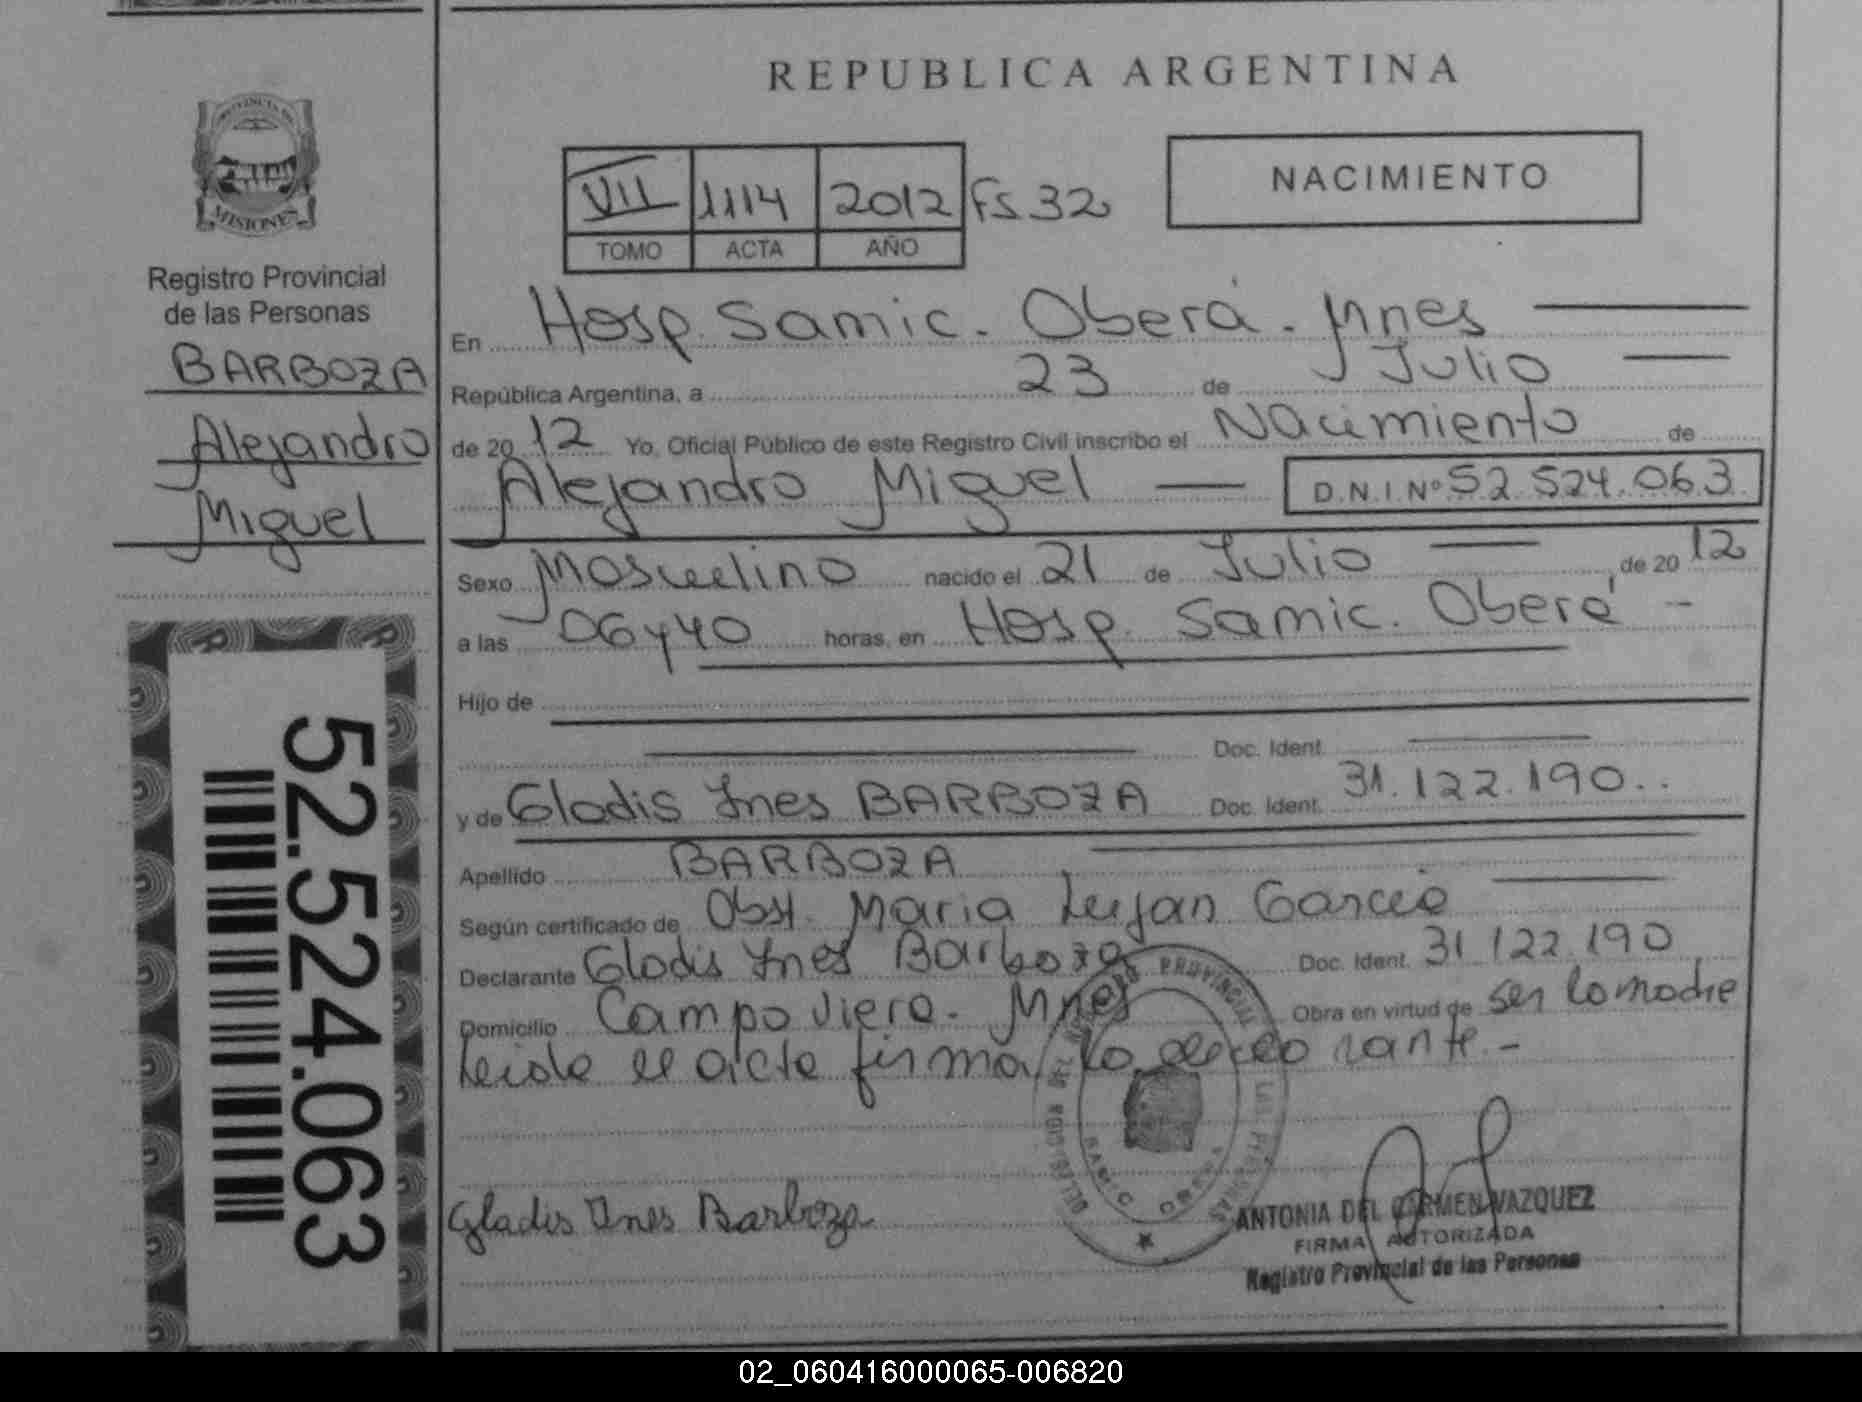 REPUBLICA ARGENTINA
PROVINCIA DE
MISIONES
Registro Provincial
de las Personas
BARBOZA
Alejandro
Miguel
52.524.063
VII 1114 2012 Fs 32
TOMO ACTA AÑO
NACIMIENTO
En Hosp. Samic. Oberá. Mnes
República Argentina, a 23 de Julio
de 20 12 Yo, Oficial Público de este Registro Civil inscribo el Nacimiento de
Alejandro Miguel D.N.I Nº 52.524.063
Sexo Masculino nacido el 21 de Julio de 20 12
a las 06y40 horas, en Hosp. Samic. Oberá -
Hijo de
Doc. Ident.
y de Gladis Ines BARBOZA Doc. Ident. 31.122.190..
Apellido BARBOZA
Según certificado de Obst. Maria Lujan Garcia
Declarante Gladis Ines Barboza Doc. Ident. 31.122.190
Domicilio Campo Viera. Mnes Obra en virtud de ser la madre
Leida el acta firma la declarante.-
REGISTRO PROVINCIAL DE LAS PERSONAS
SAMIC
Gladis Ines Barboza
ANTONIA DEL CARMEN VAZQUEZ
FIRMA AUTORIZADA
Registro Provincial de las Personas
02_060416000065-006820